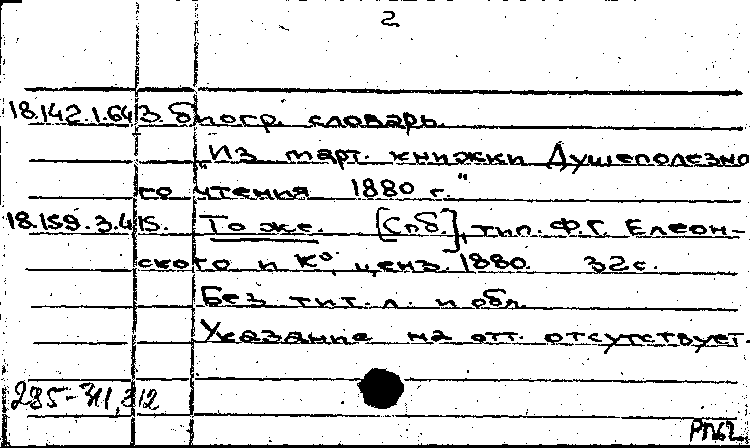 2
18.142.1.64 3. биогр. словарь.
„Из март. книжки Душеполезно
го чтения 1880 г."
18.159.3.415. То же. [Спб.], тип. Ф.Г. Елеон-
ского и К°, ценз. 1880. 32 с.
Без тит. л. и обл.
Указание на отт. отсутствует.
285-311, 312